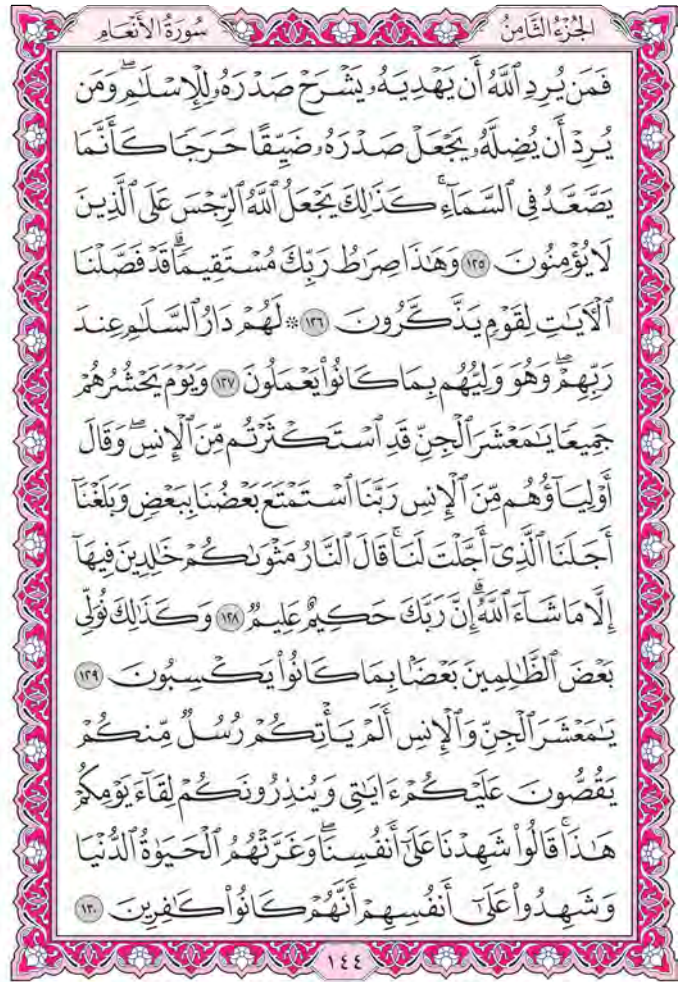 سُورَةُ الأَنْعَامِ
الجُزْءُ الثَّامِنُ
فَمَن يُرِدِ ٱللَّهُ أَن يَهْدِيَهُۥ يَشْرَحْ صَدْرَهُۥ لِلْإِسْلَٰمِ ۖ وَمَن
يُرِدْ أَن يُضِلَّهُۥ يَجْعَلْ صَدْرَهُۥ ضَيِّقًا حَرَجًا كَأَنَّمَا
يَصَّعَّدُ فِى ٱلسَّمَآءِ ۚ كَذَٰلِكَ يَجْعَلُ ٱللَّهُ ٱلرِّجْسَ عَلَى ٱلَّذِينَ
لَا يُؤْمِنُونَ ١٢٥ وَهَٰذَا صِرَٰطُ رَبِّكَ مُسْتَقِيمًا ۗ قَدْ فَصَّلْنَا
ٱلْءَايَٰتِ لِقَوْمٍ يَذَّكَّرُونَ ١٢٦ ۞ لَهُمْ دَارُ ٱلسَّلَٰمِ عِندَ
رَبِّهِمْ ۖ وَهُوَ وَلِيُّهُم بِمَا كَانُوا۟ يَعْمَلُونَ ١٢٧ وَيَوْمَ يَحْشُرُهُمْ
جَمِيعًا يَٰمَعْشَرَ ٱلْجِنِّ قَدِ ٱسْتَكْثَرْتُم مِّنَ ٱلْإِنسِ ۖ وَقَالَ
أَوْلِيَآؤُهُم مِّنَ ٱلْإِنسِ رَبَّنَا ٱسْتَمْتَعَ بَعْضُنَا بِبَعْضٍ وَبَلَغْنَآ
أَجَلَنَا ٱلَّذِىٓ أَجَّلْتَ لَنَا ۚ قَالَ ٱلنَّارُ مَثْوَىٰكُمْ خَٰلِدِينَ فِيهَآ
إِلَّا مَا شَآءَ ٱللَّهُ ۗ إِنَّ رَبَّكَ حَكِيمٌ عَلِيمٌ ١٢٨ وَكَذَٰلِكَ نُوَلِّى
بَعْضَ ٱلظَّٰلِمِينَ بَعْضًۢا بِمَا كَانُوا۟ يَكْسِبُونَ ١٢٩
يَٰمَعْشَرَ ٱلْجِنِّ وَٱلْإِنسِ أَلَمْ يَأْتِكُمْ رُسُلٌ مِّنكُمْ
يَقُصُّونَ عَلَيْكُمْ ءَايَٰتِى وَيُنذِرُونَكُمْ لِقَآءَ يَوْمِكُمْ
هَٰذَا ۚ قَالُوا۟ شَهِدْنَا عَلَىٰٓ أَنفُسِنَا ۖ وَغَرَّتْهُمُ ٱلْحَيَوٰةُ ٱلدُّنْيَا
وَشَهِدُوا۟ عَلَىٰٓ أَنفُسِهِمْ أَنَّهُمْ كَانُوا۟ كَٰفِرِينَ ١٣٠
١٤٤